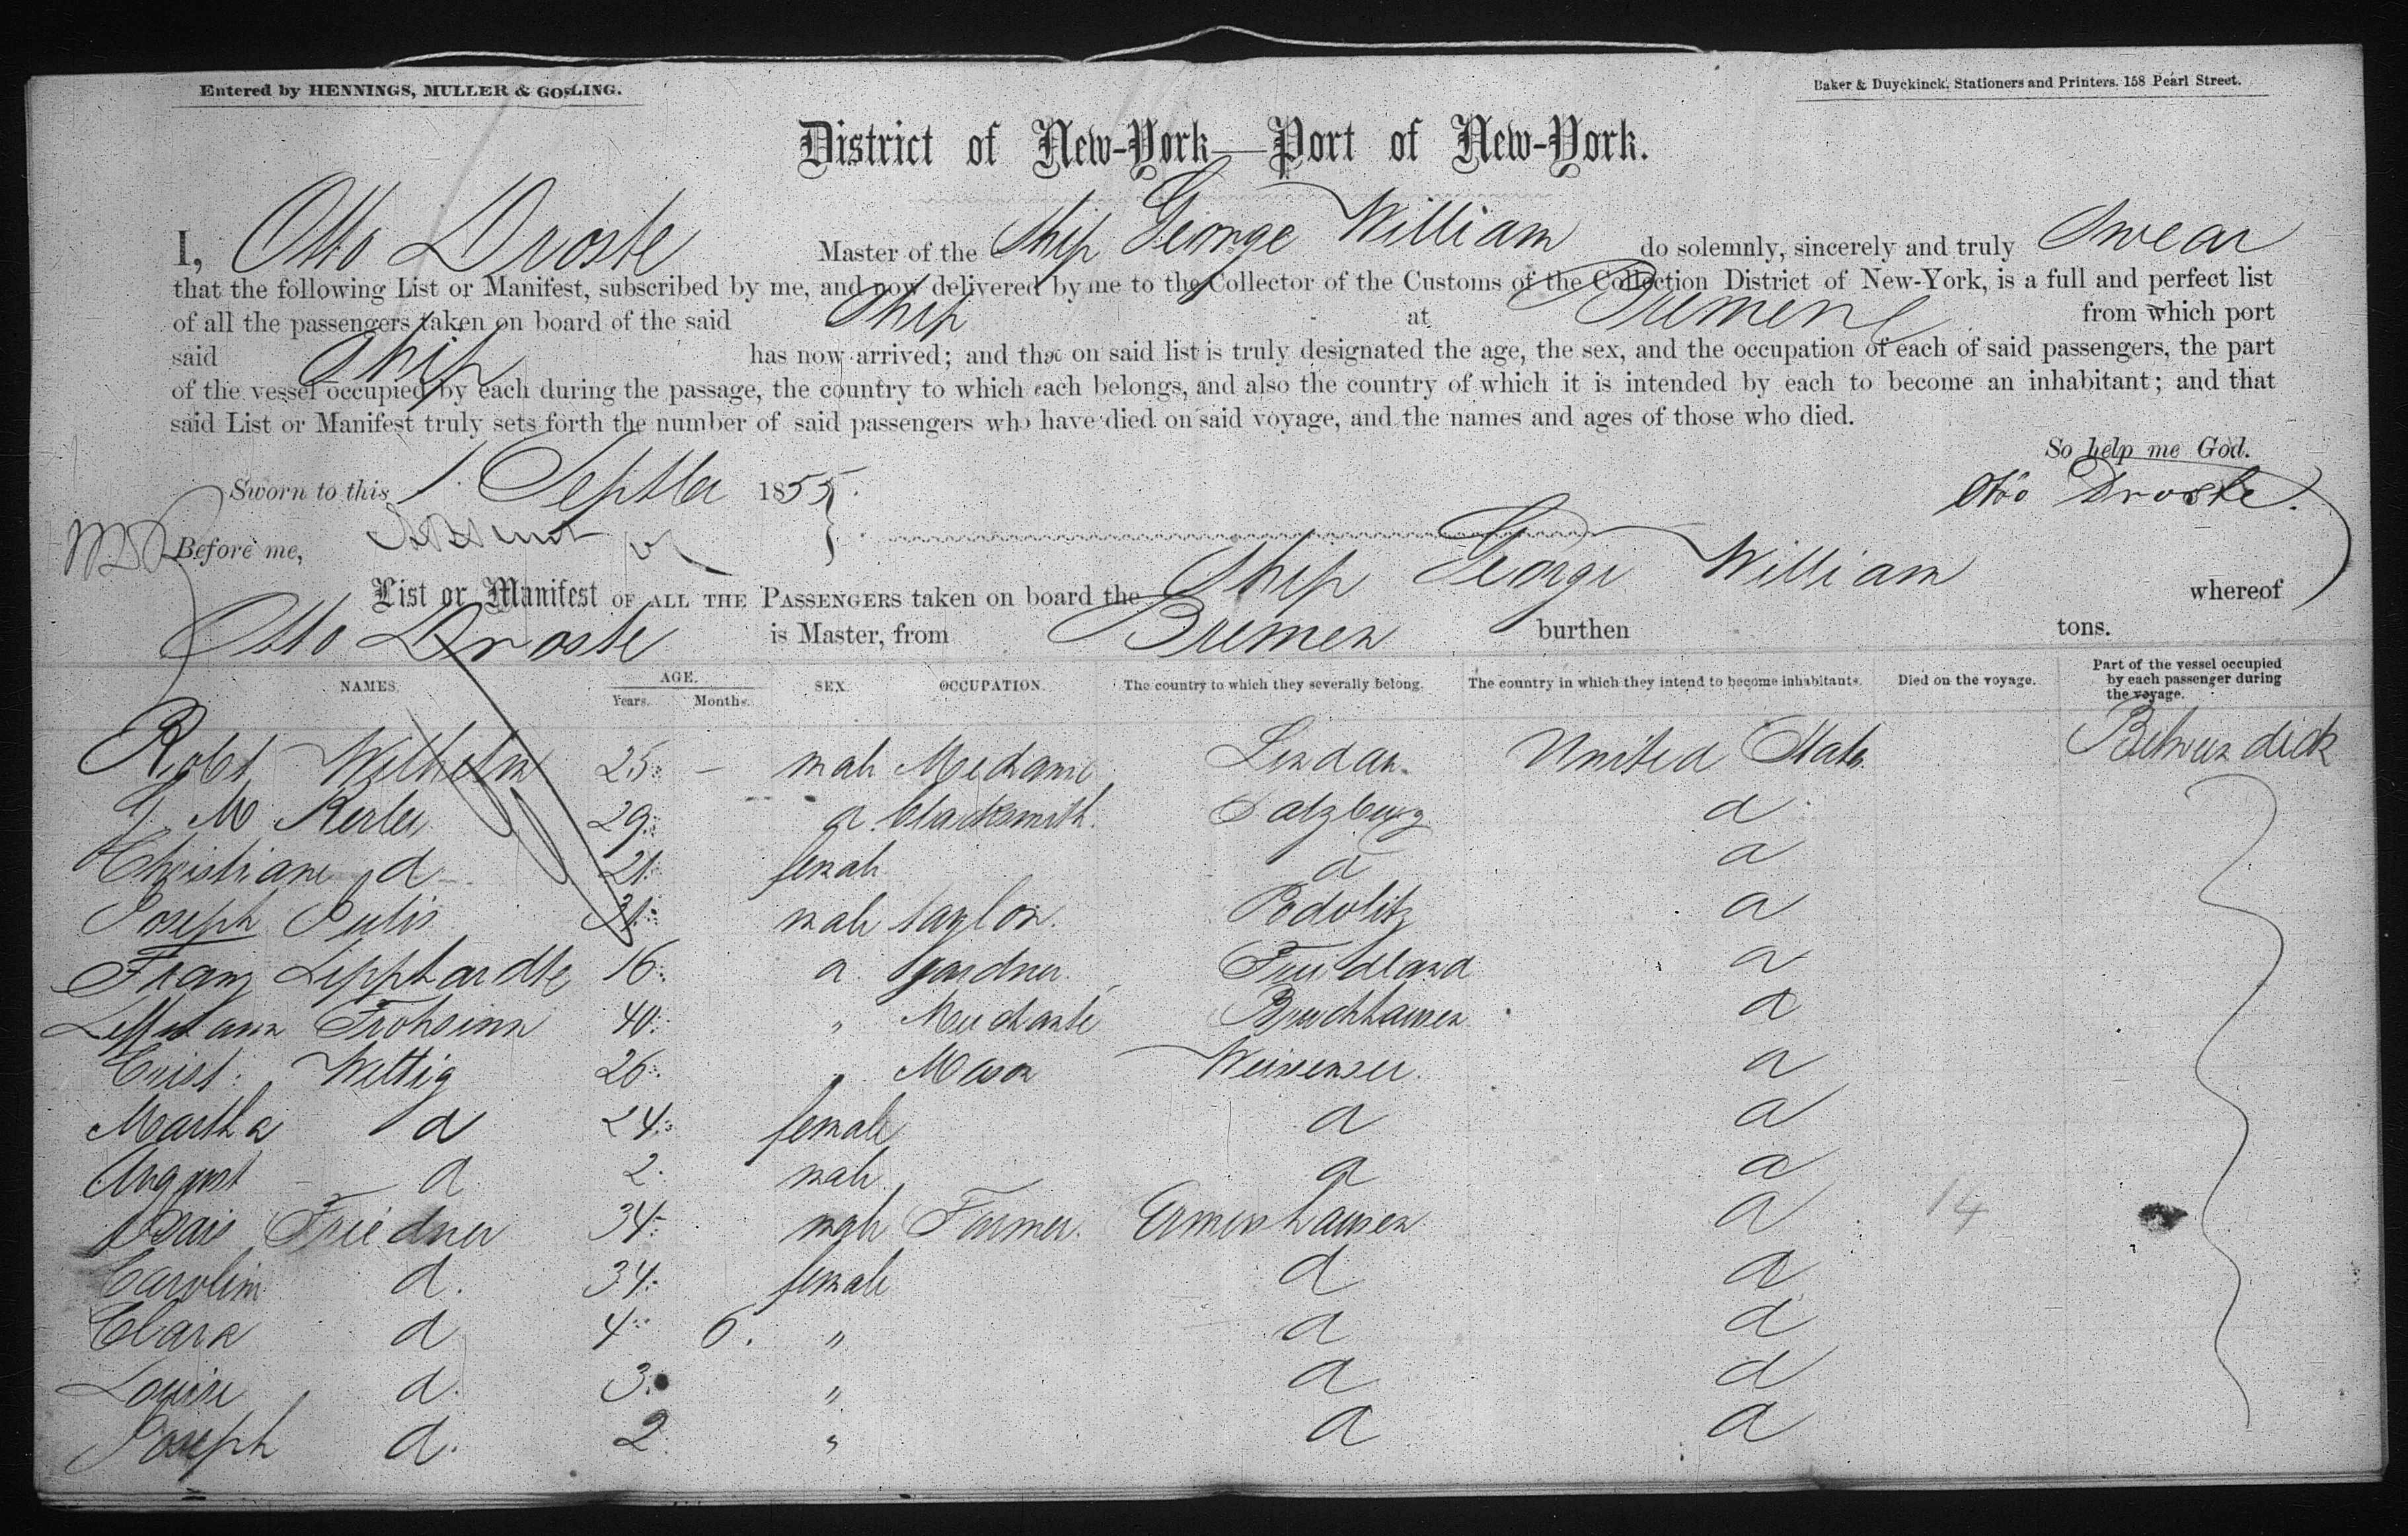 Entered by HENNINGS, MULLER & GOSLING.
Baker & Duyckinck, Stationers and Printers. 158 Pearl Street.
District of New-York—Port of New-York.
I, Otto Droste Master of the Ship George William do solemnly, sincerely and truly Swear
that the following List or Manifest, subscribed by me, and now delivered by me to the Collector of the Customs of the Collection District of New-York, is a full and perfect list
of all the passengers taken on board of the said Ship at Bremen from which port
said Ship has now arrived; and that on said list is truly designated the age, the sex, and the occupation of each of said passengers, the part
of the vessel occupied by each during the passage, the country to which each belongs, and also the country of which it is intended by each to become an inhabitant; and that
said List or Manifest truly sets forth the number of said passengers who have died on said voyage, and the names and ages of those who died.
So help me God.
Sworn to this 1. Septber 1855. Otto Droste.
Before me,
List or Manifest OF ALL THE PASSENGERS taken on board the Ship George William whereof
Otto Droste is Master, from Bremen burthen tons.
NAMES. AGE. Years. Months. SEX. OCCUPATION. The country to which they severally belong. The country in which they intend to become inhabitants. Died on the voyage. Part of the vessel occupied by each passenger during the voyage.
Robt Wilhelm 25 – male Mechanic Lindau United States Between deck
M Kerler 29 d blacksmith. Salzburg d
Christiane d 21 female d d
Joseph 31 male taylor. Podolitz d
Franz Lipphardte 16 d gardner Friedland d
Leffmann Frohsinn 40 " Merchante Bruchhausen d
Crist: Wettig 26 " Mason Weisensee. d
Martha d 24 female d d
August d 2 male d d
Friedner 34 male Farmer. Ermershausen d 14
Carolin d. 34 female d d
Clara d 4 6. " d d
Louise d. 3. " d d
Joseph d. 2. " d d